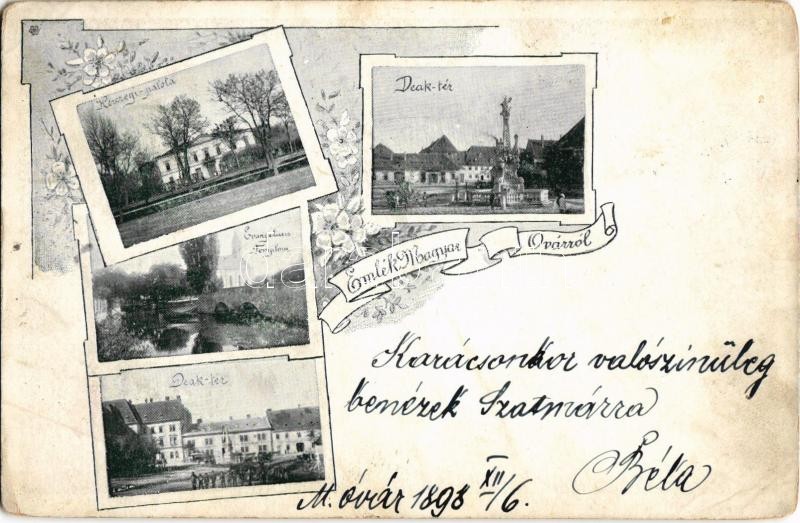 Herczegi-palota
Deak-tér
Evangelicus
Templom
Emlék Magyar
Óvárról
Deak-tér
Karácsonkor valószinüleg
benézek Szatmárra
Béla
M. óvár 1898 XII/6.